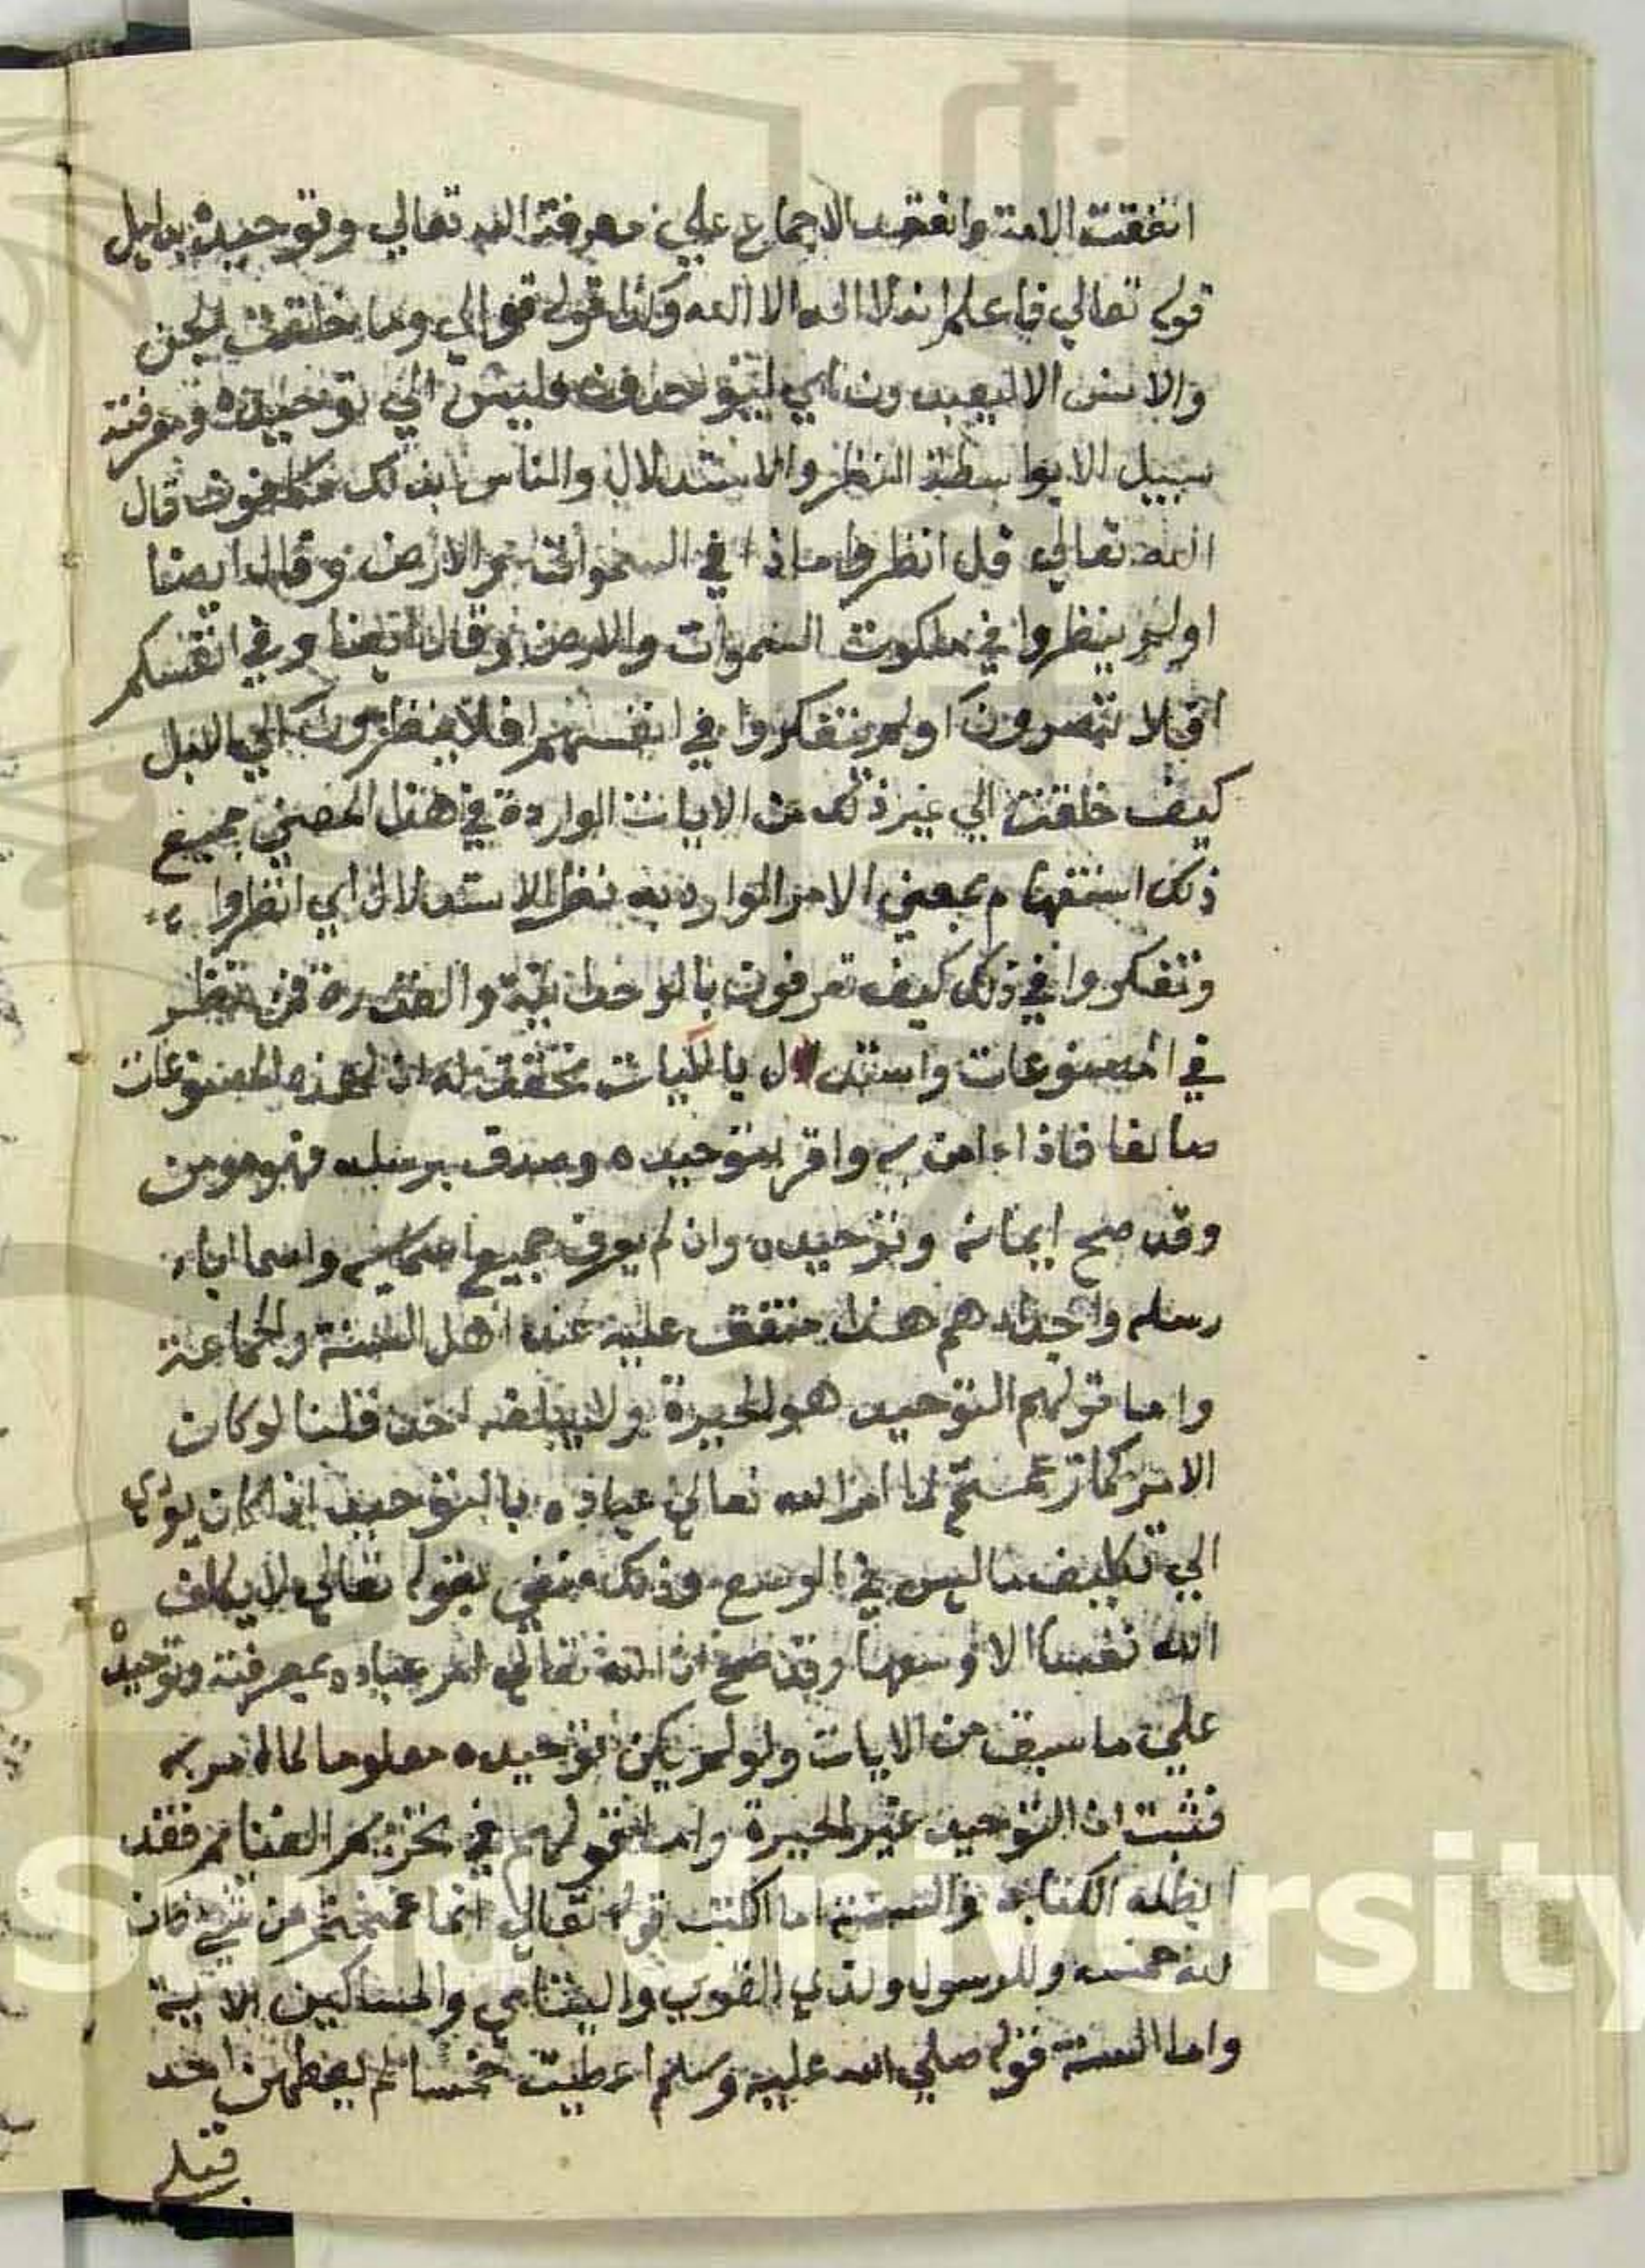 اتفقت الامة وانعقد الاجماع علي معرفة الله تعالي وتوحيده بدليل
قوله تعالي فاعلم انه لا اله الا الله وكذا قوله تعالي وما خلقت الجن
والانس الا ليعبدون اي ليوحدون فليس الي توحيده ومعرفته
سبيل الا بواسطة النظر والاستدلال والناس بذلك مكلفون قال
الله تعالي قل انظروا ماذا في السموات والارض وقال ايضا
اولم ينظروا في ملكوت السموات والارض وقال ايضا وفي انفسكم
افلا تبصرون اولم يتفكروا في انفسهم افلا ينظرون الي الابل
كيف خلقت الي غير ذلك من الايات الواردة في هذا المعني جميع
ذلك استفهام بمعني الامر المراد به نظر الاستدلال اي انظروا
وتفكروا في ذلك كيف تعرفون بالوحدانية والقدرة فمن نظر
في المصنوعات واستدلال بالايات تحقق له ان لهذه المصنوعات
صانعا فاذا ءامن به واقر بتوحيده وصدق برسله فهو مومن
وقد صح ايمانه وتوحيده وان لم يعرف جميع اسمايه واسما اباء
رسله واجدادهم هذا متفق عليه عند اهل السنة والجماعة
واما قولهم التوحيد هو الحيرة ولا يبلغه احد قلنا لو كان
الامر كما زعمتم لما امر الله تعالي عباده بالتوحيد اذ كان يؤدي
الي تكليف ما ليس في الوسع وذلك منفي بقوله تعالي لا يكلف
الله نفسا الا وسعها وقد صح ان الله تعالي امر عباده بمعرفته وتوحيده
علي ما سبق من الايات ولو لم يكن توحيده معلوما لما امر به
فثبت ان التوحيد غير الحيرة واما قولهم في تحريم الغنايم فقد
ابطله الكتاب والسنة اما الكتب قوله تعالي انما غنمتم من شي فان
لله خمسه وللرسول ولذي القربي واليتامي والمساكين الاية
واما السنة قوله صلي الله عليه وسلم اعطيت خمسا لم يعطهن احد
قبلي